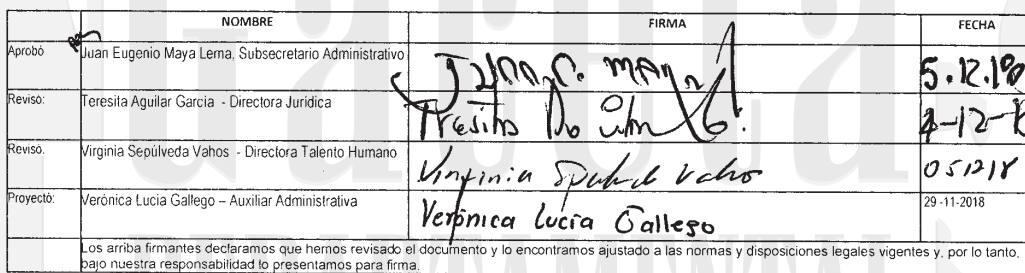 NOMBRE FIRMA FECHA
Aprobó Juan Eugenio Maya Lema, Subsecretario Administrativo 5.12.18
Revisó: Teresita Aguilar García - Directora Jurídica 4-12-18
Revisó. Virginia Sepúlveda Vahos - Directora Talento Humano Virginia Sepulveda Vahos 051218
Proyectó: Verónica Lucía Gallego – Auxiliar Administrativa Verónica Lucía Gallego 29-11-2018
Los arriba firmantes declaramos que hemos revisado el documento y lo encontramos ajustado a las normas y disposiciones legales vigentes y, por lo tanto,
bajo nuestra responsabilidad lo presentamos para firma.